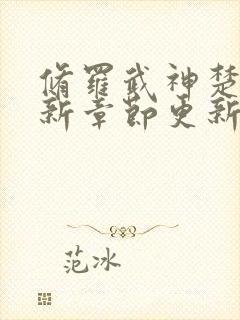 脩羅武神楚
新章節更新
范冰